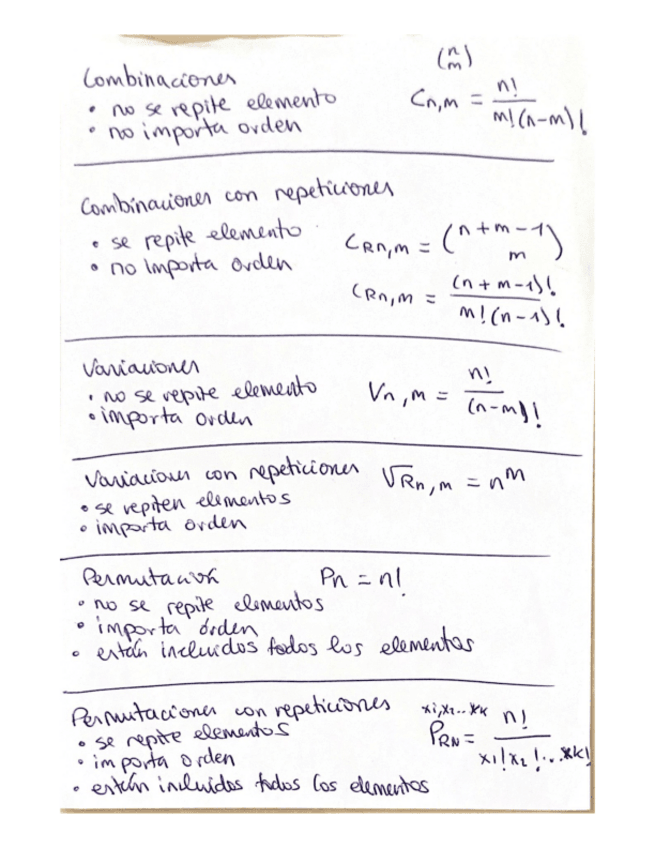 Combinaciones
• no se repite elemento
• no importa orden
(n m)
Cn,m = n! / m!(n-m)!
Combinaciones con repeticiones
• se repite elemento
• no importa orden
CRn,m = (n+m-1 m)
CRn,m = (n+m-1)! / m!(n-1)!
Variaciones
• no se repite elemento
• importa orden
Vn,m = n! / (n-m)!
Variaciones con repeticiones VRn,m = n^m
• se repiten elementos
• importa orden
Permutación Pn = n!
• no se repite elementos
• importa orden
• están incluidos todos los elementos
Permutaciones con repeticiones
• se repite elementos
• importa orden
• están incluidos todos los elementos
x1,x2...xk
PRN = n! / x1!x2!...xk!